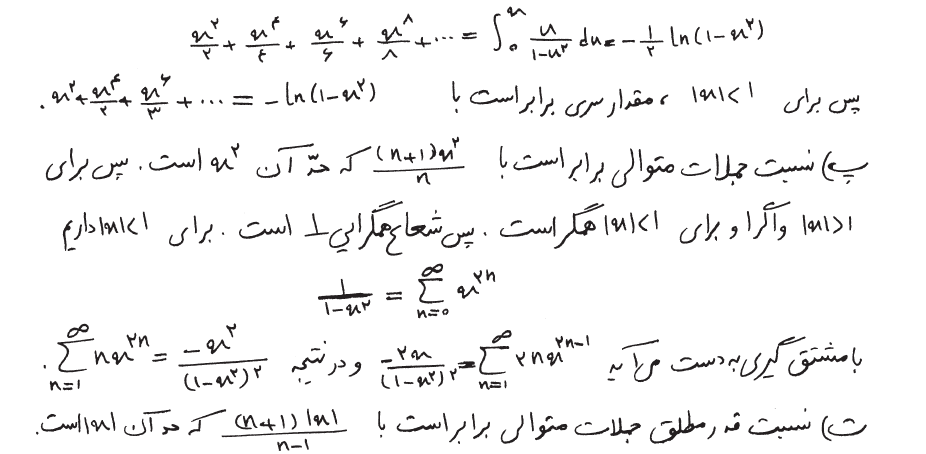 x²/۲ + x⁴/۴ + x⁶/۶ + x⁸/۸ + ⋯ = ∫₀ˣ u/(۱-u²) du = -۱/۲ ln(۱-x²)
پس برای |x|<۱ ، مقدار سری برابر است با x² + x⁴/۲ + x⁶/۳ + ⋯ = -ln(۱-x²) .
پ) نسبت جملات متوالی برابر است با (n+۱)x²/n که حدّ آن x² است. پس برای
|x|>۱ واگرا و برای |x|<۱ همگراست. پس شعاع همگرایی ۱ است. برای |x|<۱ داریم
۱/(۱-x²) = ∑_{n=۰}^{∞} x^{۲n}
با مشتق گیری به دست می آید -۲x/(۱-x²)² = ∑_{n=۱}^{∞} ۲nx^{۲n-۱} و در نتیجه ∑_{n=۱}^{∞} nx^{۲n} = -x²/(۱-x²)² .
ت) نسبت قدر مطلق جملات متوالی برابر است با (n+۱)|x|/(n-۱) که حد آن |x| است.